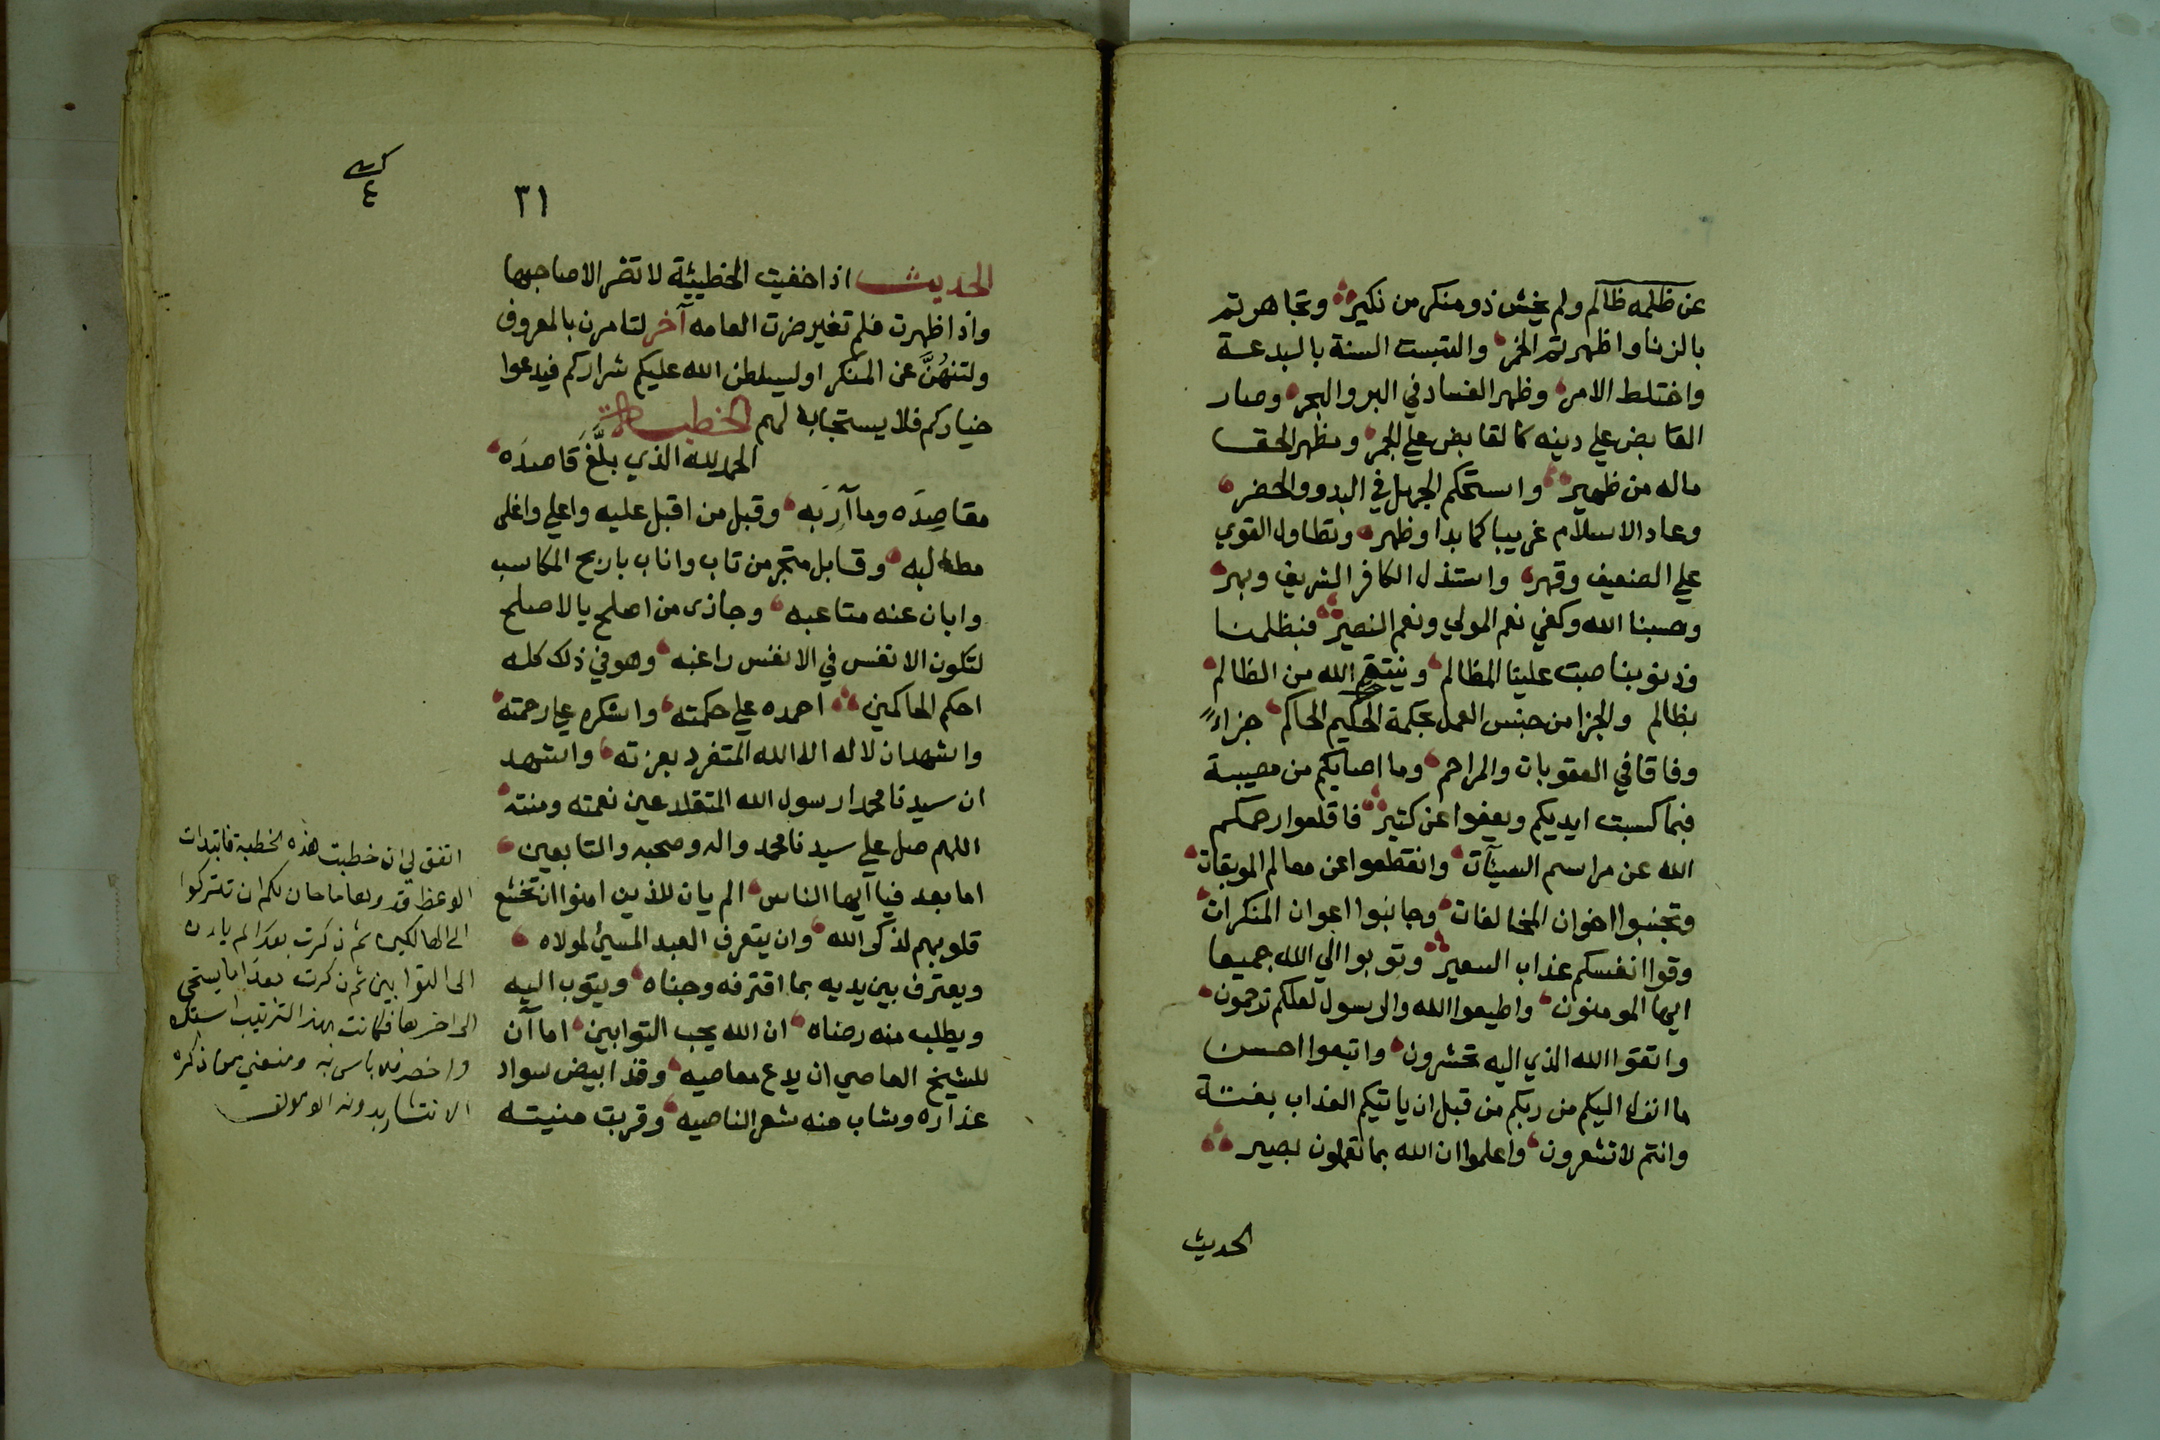 عن ظلمه ظالم ولم يخش ذو منكر من نكير وتجاهرتم
بالزنا واظهرتم الخمر والتبست السنة بالبدعة
واختلط الامر وظهر الفساد في البر والبحر وصار
القابض علي دينه كالقابض علي الجمر ومظهر الحق
ماله من ظهير واستحكم الجهل في البدو والحضر
وعاد الاسلام غريبا كما بدا وظهر وتطاول القوي
علي الضعيف وقهر واستذل الكافر الشريف وبهر
وحسبنا الله وكفي نعم المولي ونعم النصير فبظلمنا
وذنوبنا صبت علينا المظالم وينتقم الله من الظالم
بظالم والجزا من جنس العمل بحكمة الحكيم الحاكم جزاءً
وفاقا في العقوبات والمراحم وما اصابكم من مصيبة
فبما كسبت ايديكم ويعفوا عن كثير فاقلعوا رحمكم
الله عن مراسم السيئآت وانقطعوا عن معالم الموبقات
وتجنبوا اخوان المخالفات وجانبوا اعوان المنكرات
وقوا انفسكم عذاب السعير وتوبوا الي الله جميعا
ايها المومنون واطيعوا الله والرسول لعلكم ترحمون
واتقوا الله الذي اليه تحشرون واتبعوا احسن
ما انزل اليكم من ربكم من قبل ان ياتيكم العذاب بغتة
وانتم لا تشعرون واعلموا ان الله بما تعملون بصير
الحديث
٣١
٤
الحديث اذا خفيت الخطيئة لا تضر الا صاحبها
واذا ظهرت فلم تغير ضرت العامه آخر لتامرن بالمعروف
ولتنهُنَّ عن المنكر او ليسلطن الله عليكم شراركم فيدعوا
خياركم فلا يستجاب لهم الخطبة
الحمد لله الذي بلَّغَ قَاصدَه
مقاصِدَه ومآرَبه وقبل من اقبل عليه واعلي واغلى
مطالبه وقابل متجر من تاب واناب باربح المكاسب
وابان عنه متاعبه وجازى من اصلح بالاصلح
لتكون الانفس في الانفس راغبه وهو في ذلك كله
احكم الحاكمين احمده علي حكمته واشكره علي رحمته
واشهد ان لا اله الا الله المتفرد بعزته واشهد
ان سيدنا محمدا رسول الله المتقلد عين نعمته ومنته
اللهم صل علي سيدنا محمد واله وصحبه والتابعين
اما بعد فيا ايها الناس الم يان للذين امنوا ان تخشع
قلوبهم لذكر الله وان يتعرف العبد المسئ لمولاه
ويعترف بين يديه بما اقترفه وجناه ويتوب اليه
ويطلب منه رضاه ان الله يحب التوابين اما آن
للشيخ العاصي ان يدع معاصيه وقد ابيض سواد
عذاره وشاب منه شعر الناصيه وقربت منيته
اتفق لي ان خطبت هذه الخطبة فابتدات
الوعظ
ثم ذكرت بعد الم يان
الى التوابين ثم ذكرت بعد
الى اخرها فكانت بهذا الترتيب